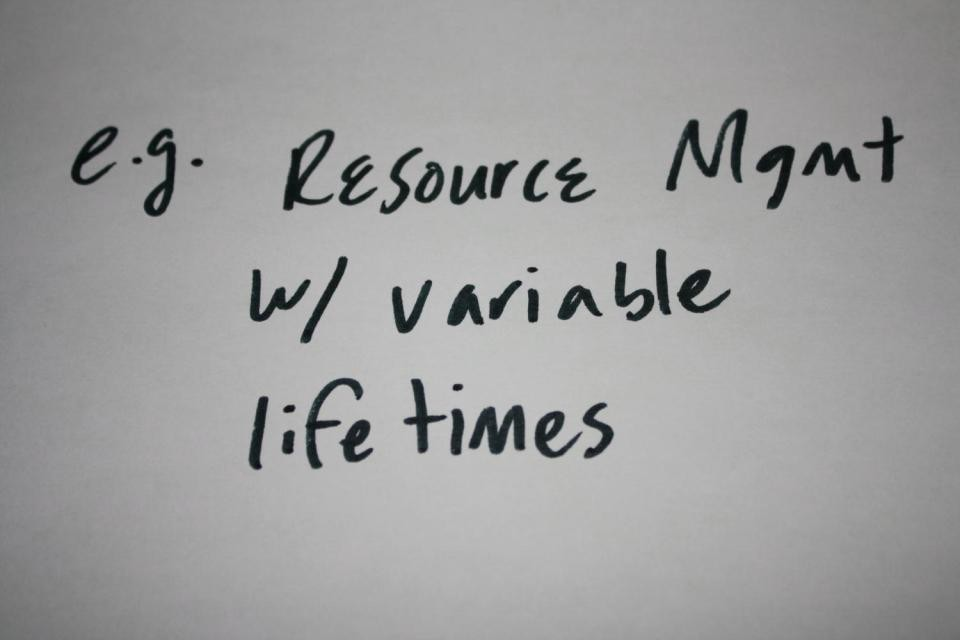 e.g. Resource Mgmt
w/ variable
life times